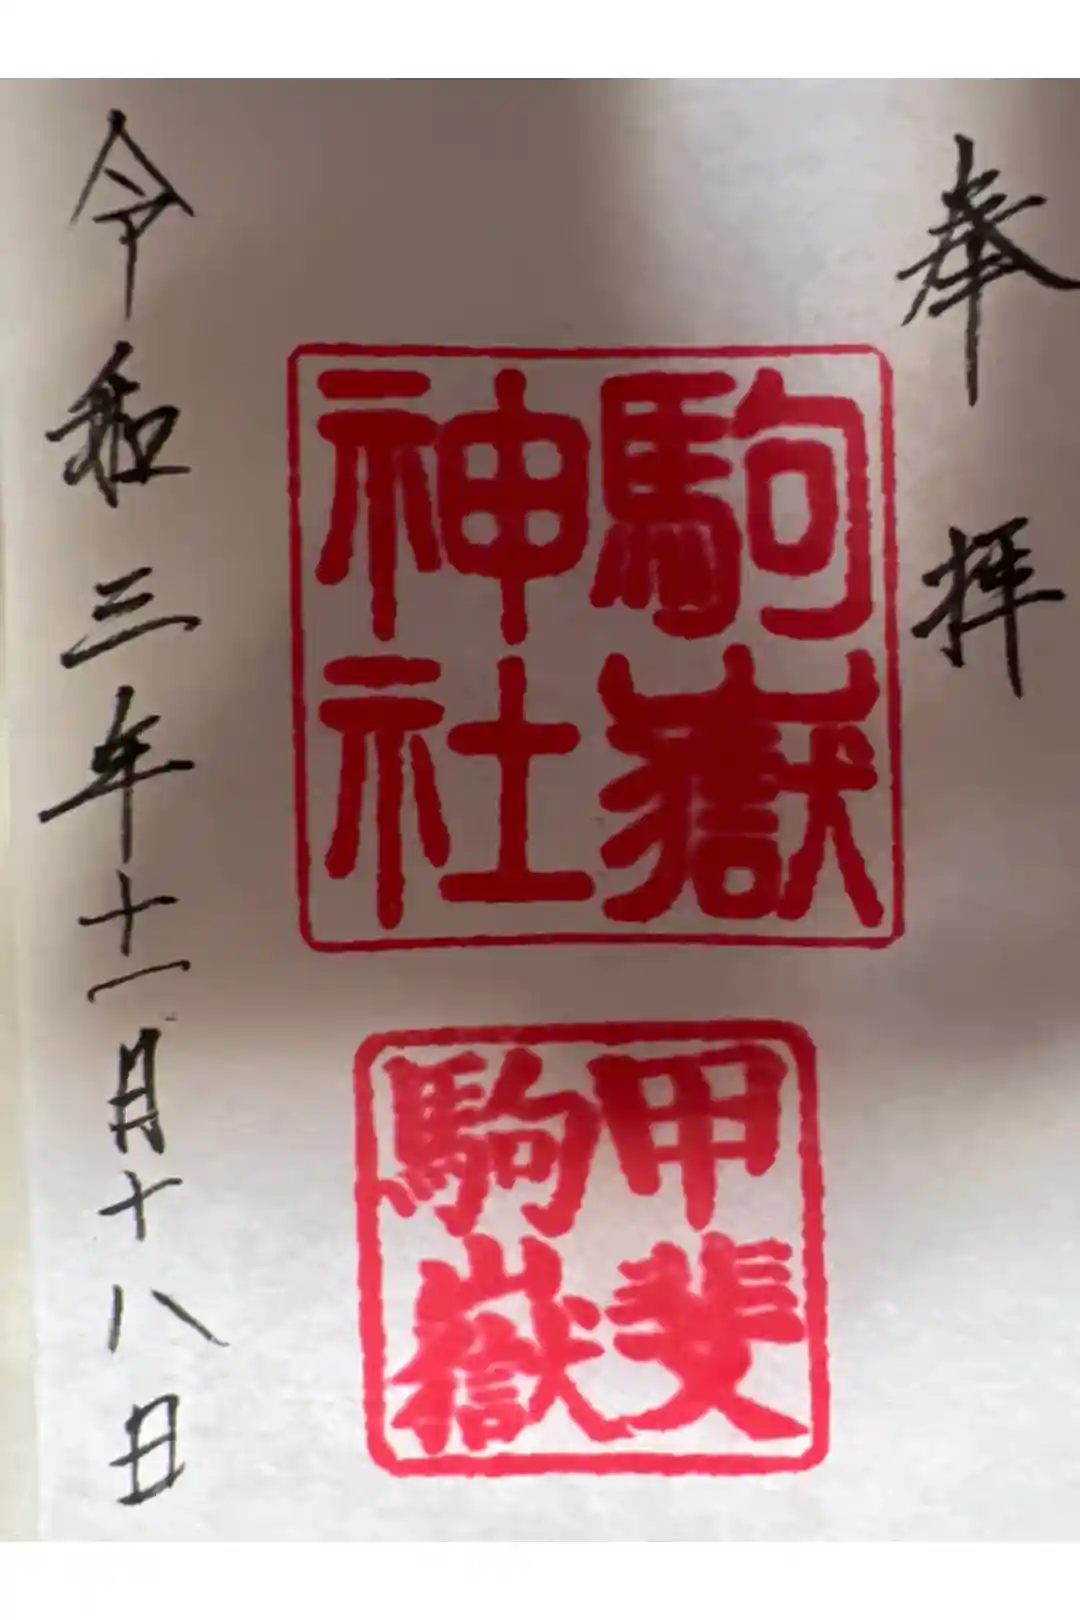 奉拝
駒嶽
神社
甲斐
駒嶽
令和三年十一月十八日